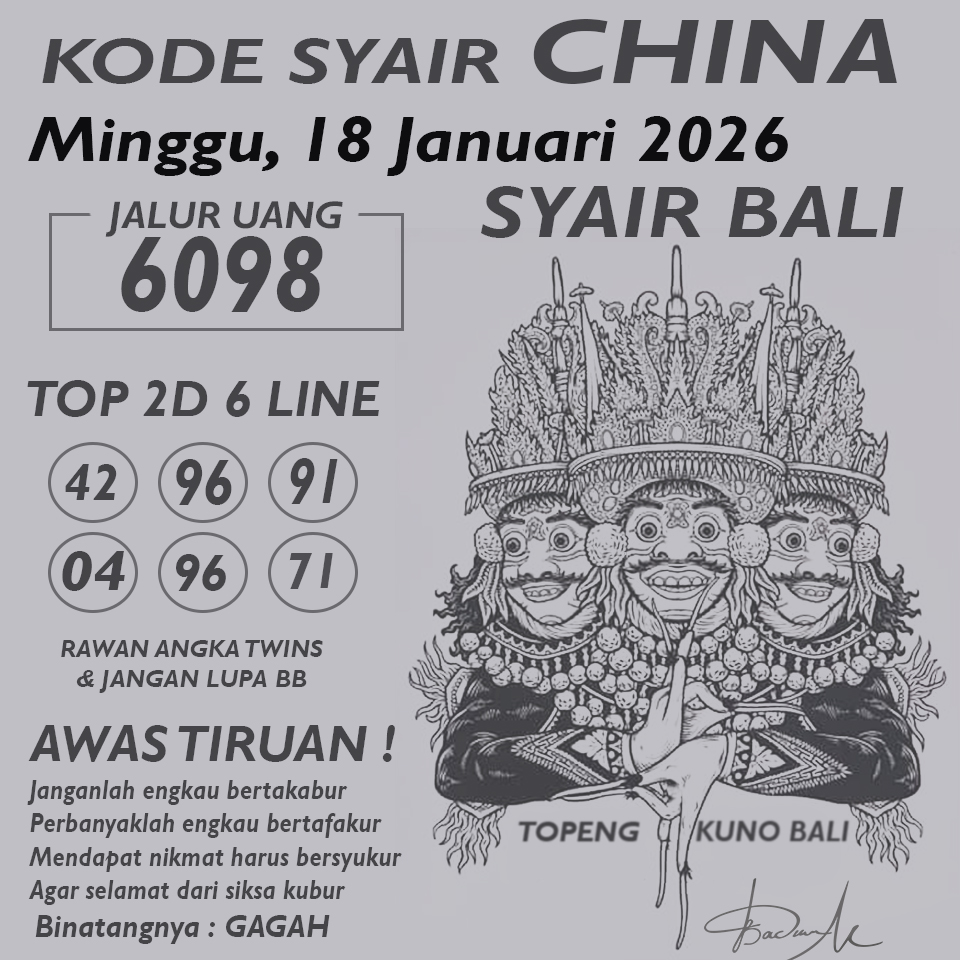 KODE SYAIR CHINA
Minggu, 18 Januari 2026
SYAIR BALI
JALUR UANG
6098
TOP 2D 6 LINE
42 96 91
04 96 71
RAWAN ANGKA TWINS
& JANGAN LUPA BB
AWAS TIRUAN !
Janganlah engkau bertakabur
Perbanyaklah engkau bertafakur
Mendapat nikmat harus bersyukur
Agar selamat dari siksa kubur
Binatangnya : GAGAH
TOPENG KUNO BALI